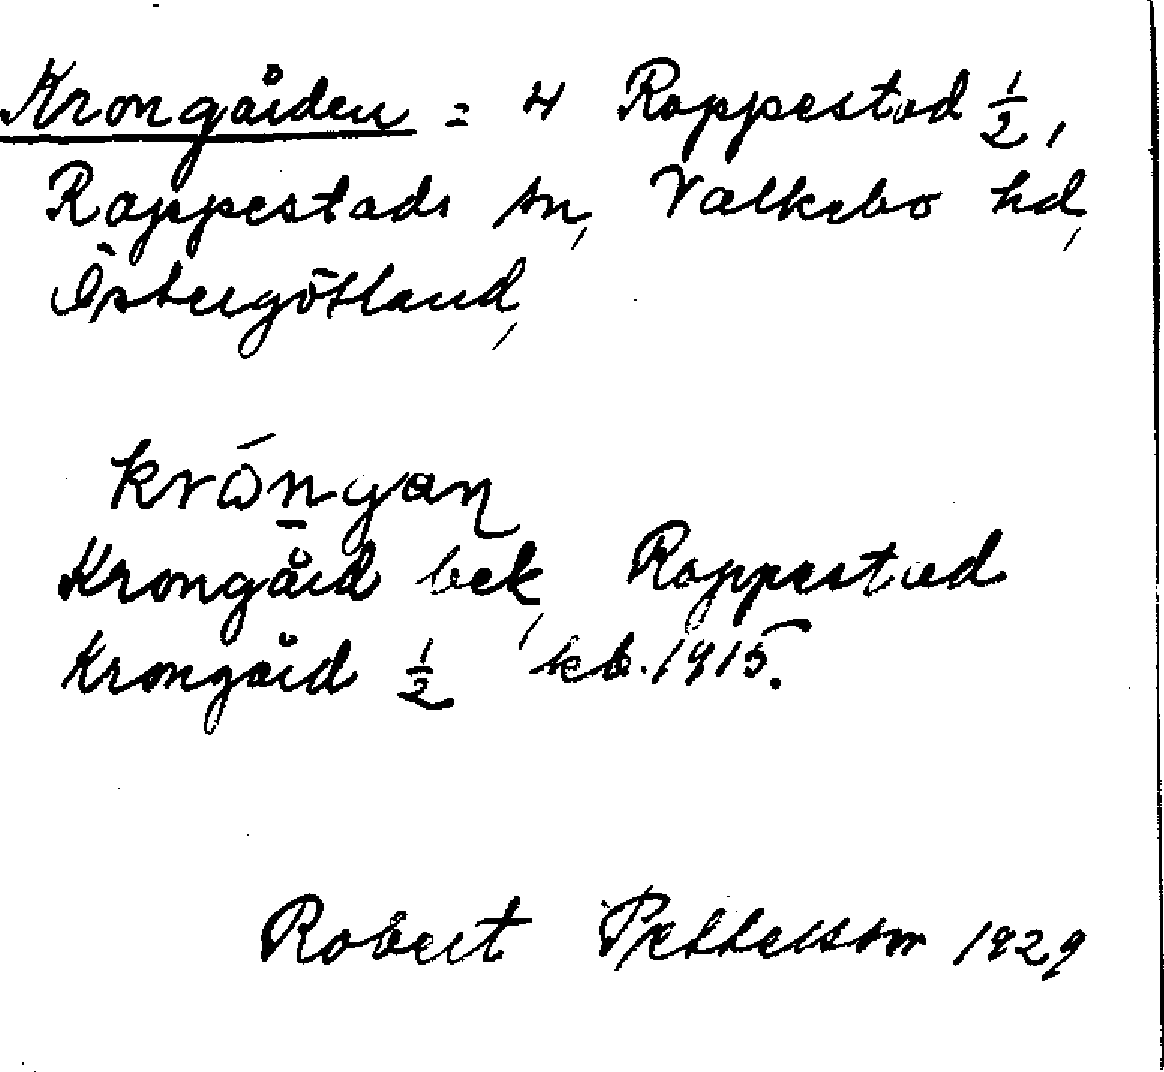 Krongården = 4 Rappestad ½,
Rappestads sn, Valkebo hd,
Östergötland,
króngaɳ
Krongård bek, Rappestad
Krongård ½ kb. 1915.
Robert Pettersson 1929